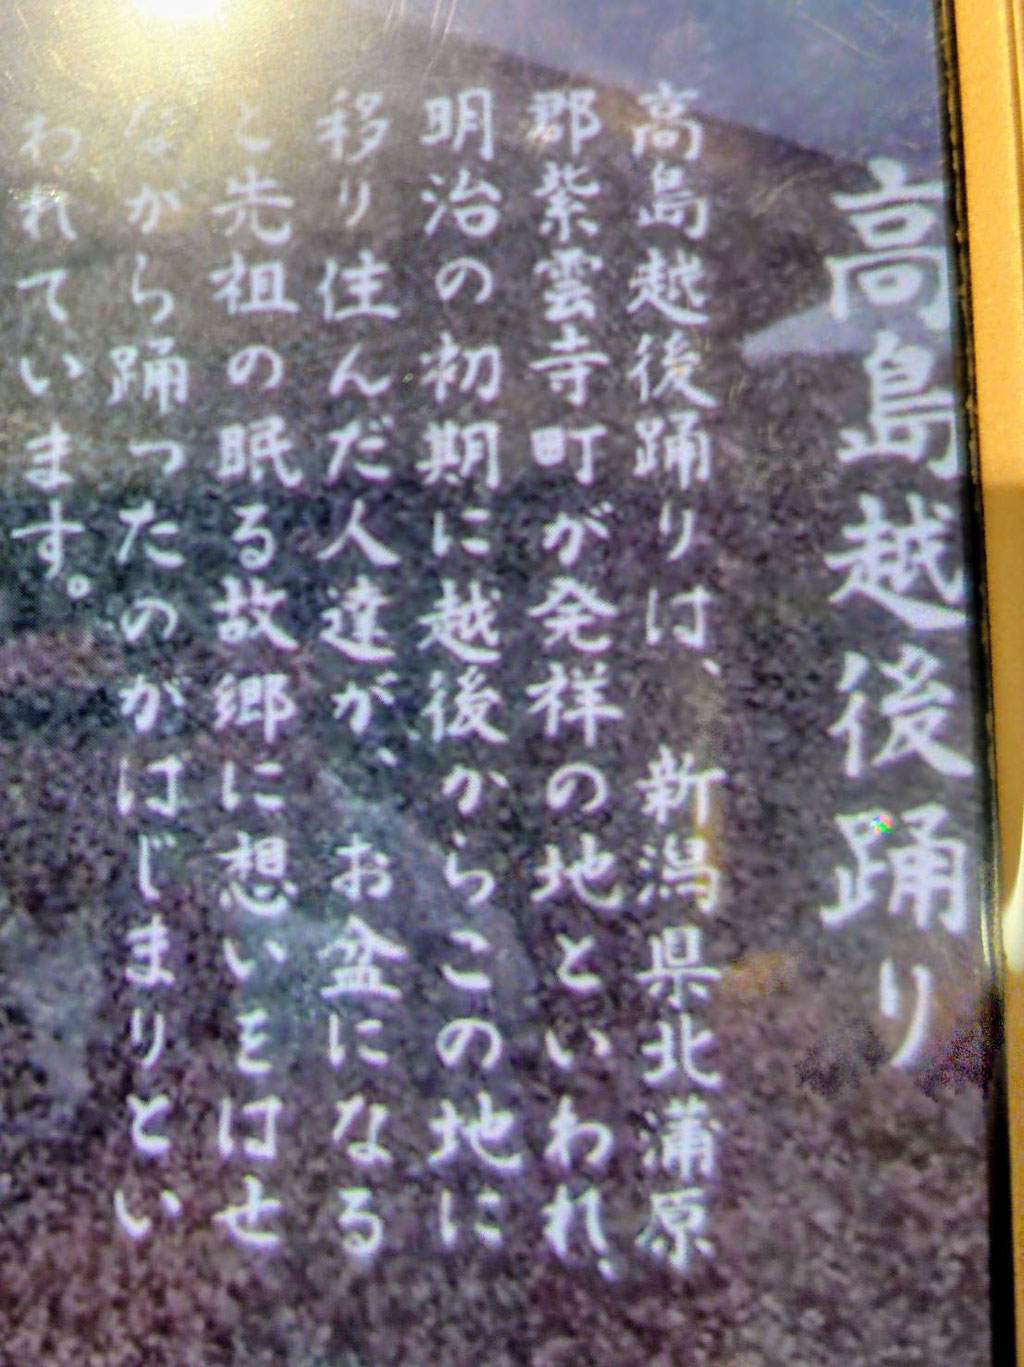 高島越後踊り
高島越後踊りは、新潟県北蒲原
郡紫雲寺町が発祥の地といわれ、
明治の初期に越後からこの地に
移り住んだ人達が、お盆になる
と先祖の眠る故郷に想いをはせ
ながら踊ったのがはじまりとい
われています。